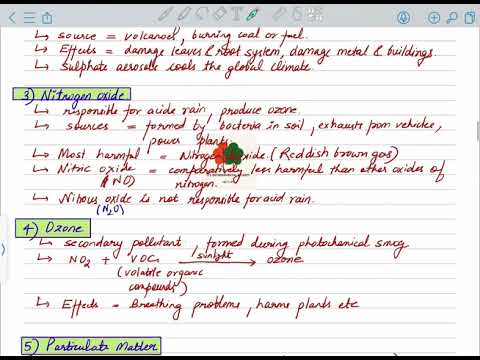 ↳ source = volcanoes, burning coal or fuel.
↳ Effects = damage leaves & root system, damage metal & buildings.
↳ Sulphate aerosols cools the global climate.
3) Nitrogen oxide
↳ responsible for acide rain, produce ozone.
↳ sources = formed by bacteria in soil, exhausts from vehicles,
power plants
↳ Most harmful = Nitrogen oxide. (Reddish brown gas)
↳ Nitric oxide = comparatively less harmful than other oxides of
(NO) nitrogen.
↳ Nitrous oxide is not responsible for acid rain.
(N₂O)
4) Ozone
↳ secondary pollutant, formed during photochemical smog
↳ NO₂ + VOCs sunlight → ozone
(volatile organic
compounds)
↳ Effects = Breathing problems, harme plants etc
5) Particulate Matter